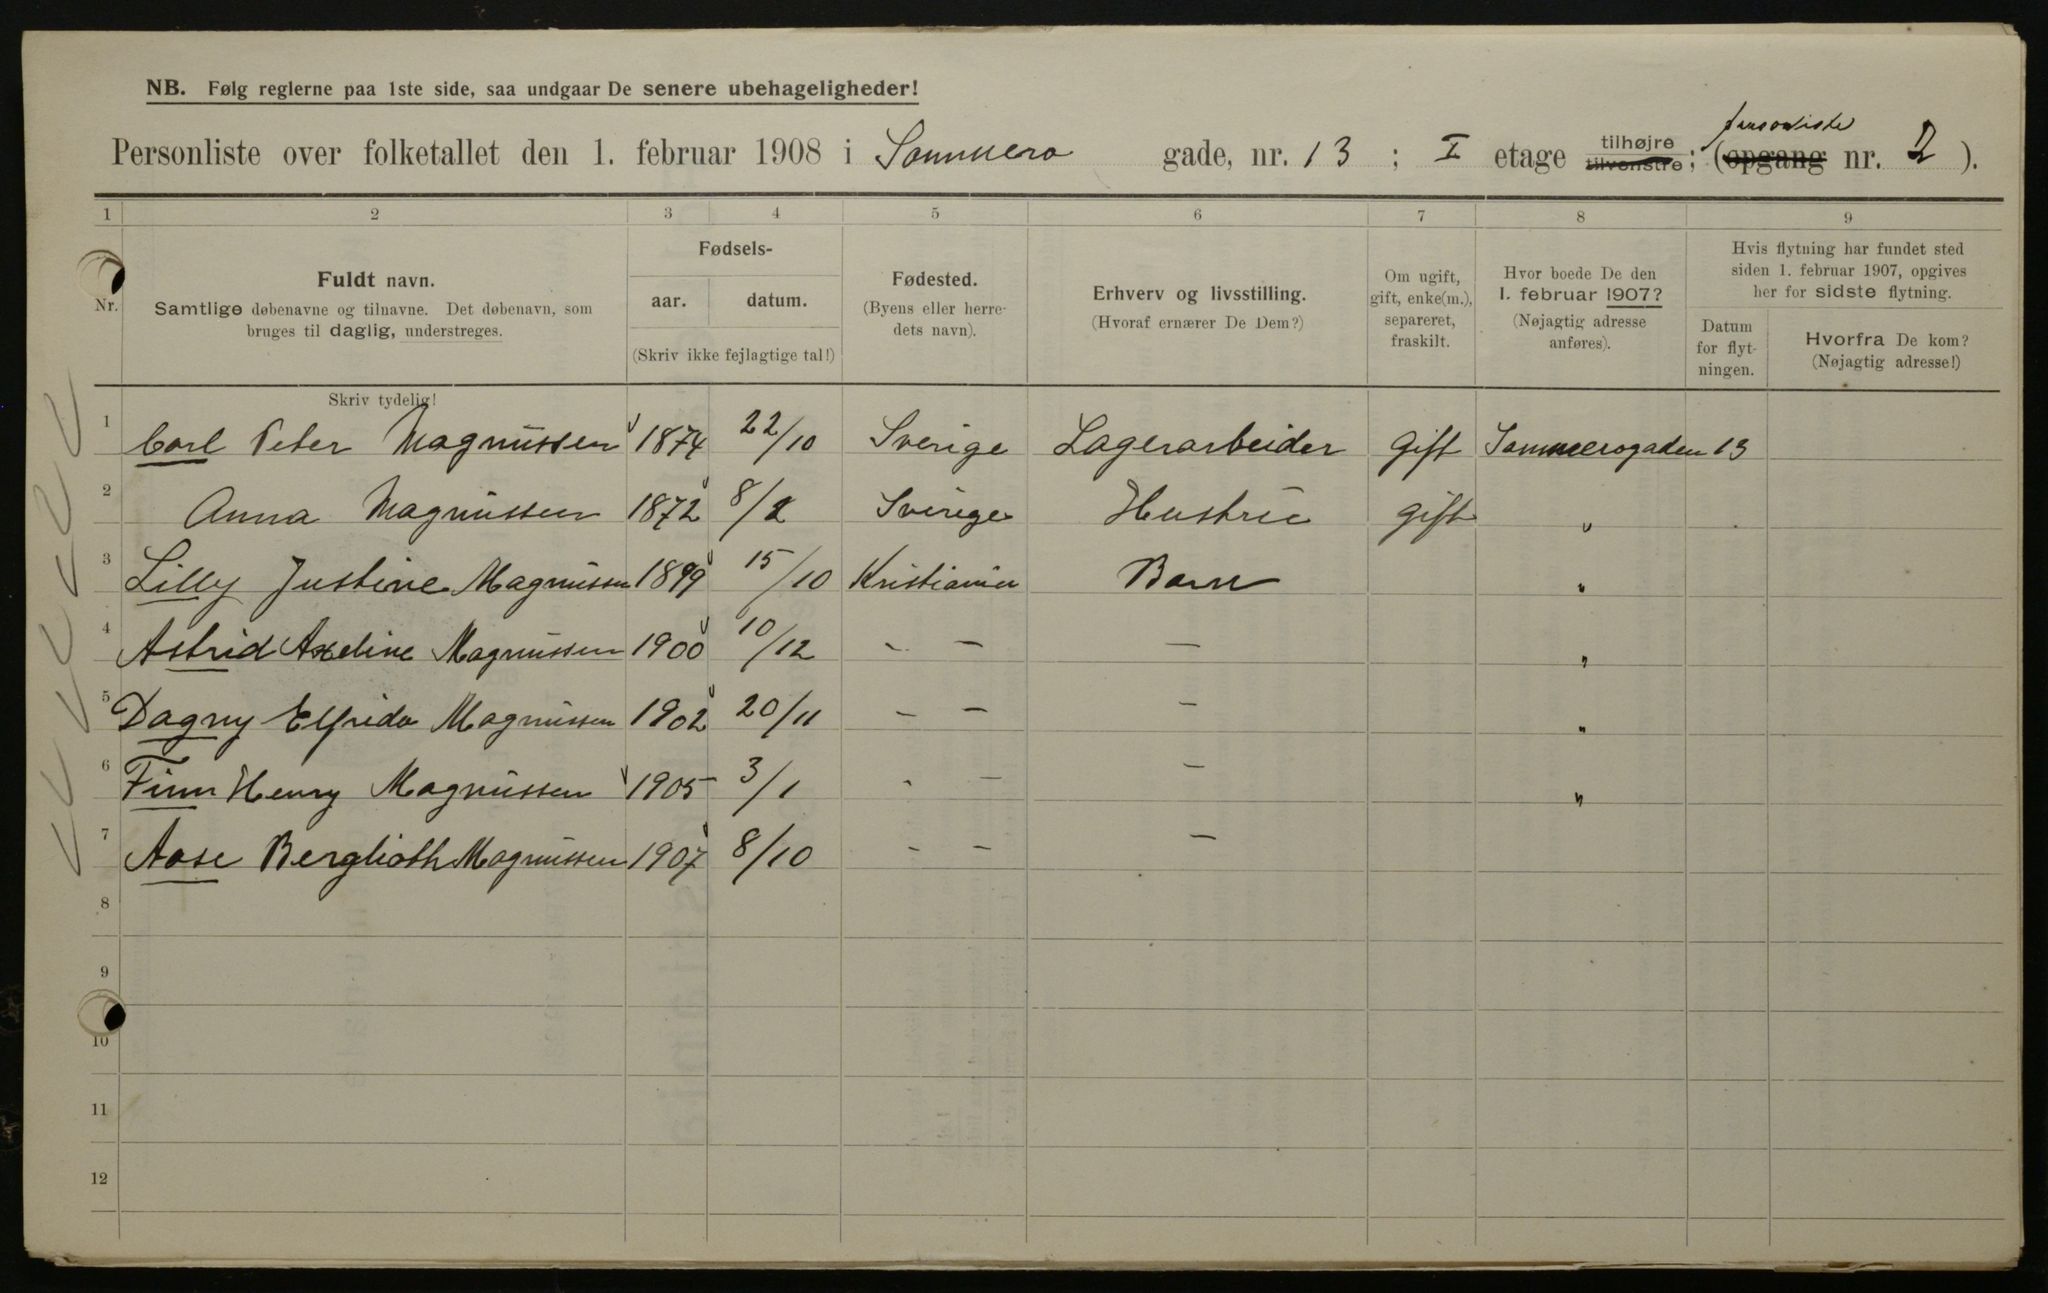 NB. Følg reglerne paa 1ste side, saa undgaar De senere ubehageligheder!
personliste
Personliste over folketallet den 1. februar 1908 i Sommero gade, nr. 13 ; I etage tilhøjre tilvenstre; (opgang nr. 2 ).
1 2 3 4 5 6 7 8 9
Nr.
Fuldt navn.
Samtlige døbenavne og tilnavne. Det døbenavn, som
bruges til daglig, understreges.
Skriv tydelig!
Fødsels-
aar. datum.
(Skriv ikke fejlagtige tal!)
Fødested.
(Byens eller herre-
dets navn).
Erhverv og livsstilling.
(Hvoraf ernærer De Dem?)
Om ugift,
gift, enke(m.),
separeret,
fraskilt.
Hvor boede De den
1. februar 1907?
(Nøjagtig adresse
anføres).
Hvis flytning har fundet sted
siden 1. februar 1907, opgives
her for sidste flytning.
Datum
for flyt-
ningen.
Hvorfra De kom?
(Nøjagtig adresse!)
1 Carl Peter Magnussen 1874 22/10 Sverige Lagerarbeider Gift Sommerogaden 13
2 Anna Magnussen 1872 8/2 Sverige Hustru Gift "
3 Lilly Justine Magnussen 1899 15/10 Kristiania Barn "
4 Astrid Axeline Magnussen 1900 10/12 - - - "
5 Dagny Elfrida Magnussen 1902 20/11 - - - "
6 Finn Henry Magnussen 1905 3/1 - - - "
7 Aase Berglioth Magnussen 1907 8/10 - - -
8
9
10
11
12